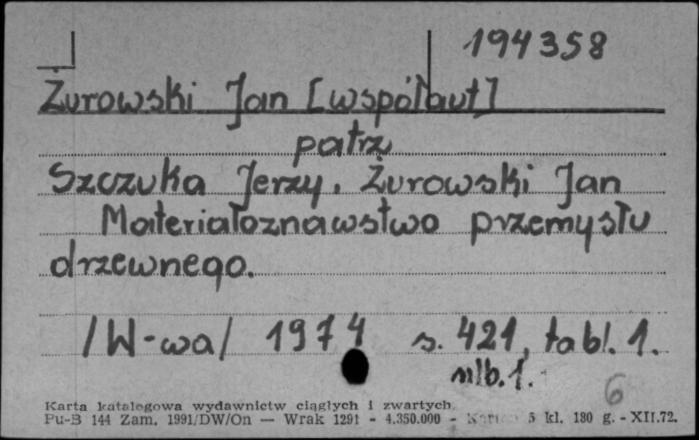 194358
Żurowski Jan [współaut]
patrz
Szczuka Jerzy, Żurowski Jan
Materiałoznawstwo przemysłu
drzewnego.
/W-wa/ 1974 s. 421, tabl. 1.
nlb. 1.
6
Karta katalogowa wydawnictw ciągłych i zwartych.
Pu-B 144 Zam. 1991/DW/On — Wrak 1291 - 4.350.000 - Karton 5 kl. 180 g. - XII.72.